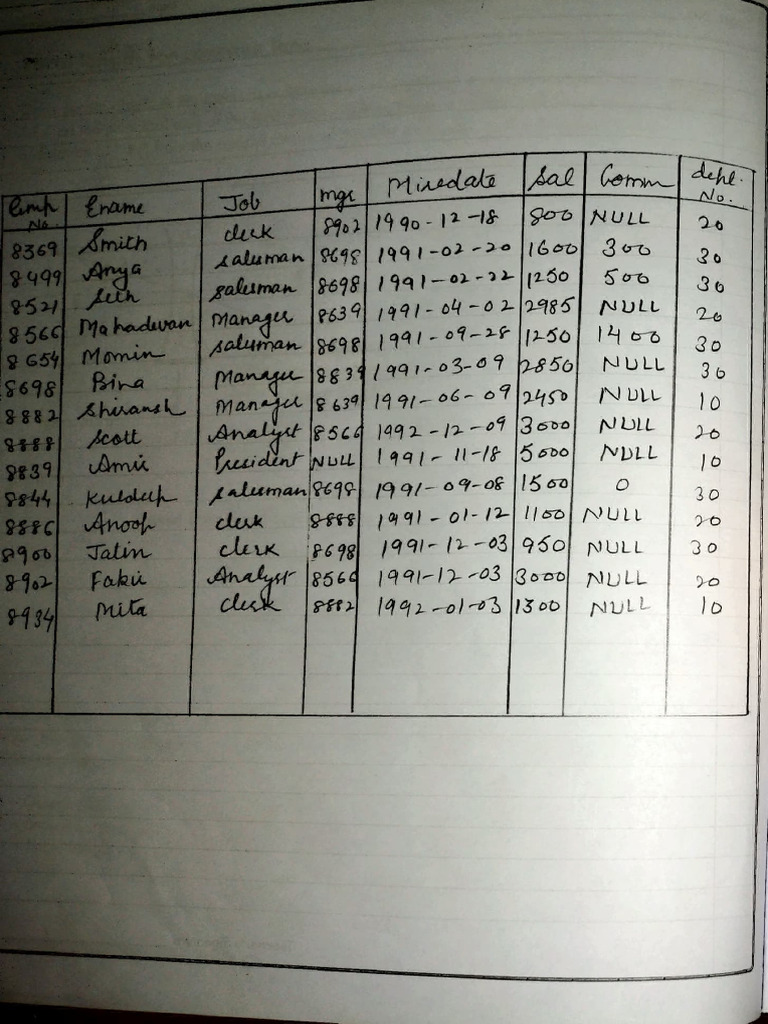 Emp No. Ename Job mgr Hiredate Sal Comm dept. No.
8369 Smith clerk 8902 1990-12-18 800 NULL 20
8499 Anya salesman 8698 1991-02-20 1600 300 30
8521 Seth salesman 8698 1991-02-22 1250 500 30
8566 Mahadevan Manager 8639 1991-04-02 2985 NULL 20
8654 Momin salesman 8698 1991-09-28 1250 1400 30
8698 Bina Manager 8839 1991-03-09 2850 NULL 30
8882 Shivansh Manager 8639 1991-06-09 2450 NULL 10
8888 Scott Analyst 8566 1992-12-09 3000 NULL 20
8839 Amir President NULL 1991-11-18 5000 NULL 10
8844 Kuldeep salesman 8698 1991-09-08 1500 0 30
8886 Anoop clerk 8888 1991-01-12 1100 NULL 20
8900 Jatin clerk 8698 1991-12-03 950 NULL 30
8902 Fakir Analyst 8566 1991-12-03 3000 NULL 20
8934 Mita clerk 8882 1992-01-03 1300 NULL 10